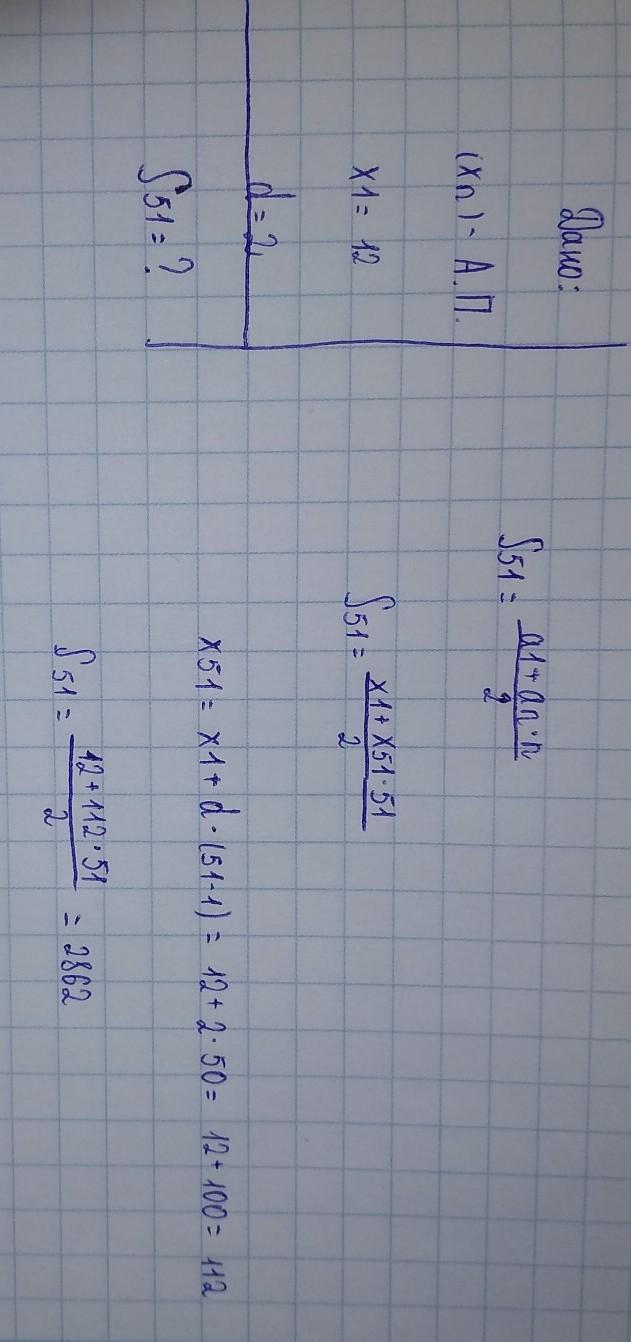 Дано:
(xn) - А.П.
x1 = 12
d = 2
S51 = ?
S51 = a1 + an · n / 2
S51 = x1 + x51 · 51 / 2
x51 = x1 + d · (51-1) = 12 + 2 · 50 = 12 + 100 = 112
S51 = 12 + 112 · 51 / 2 = 2862